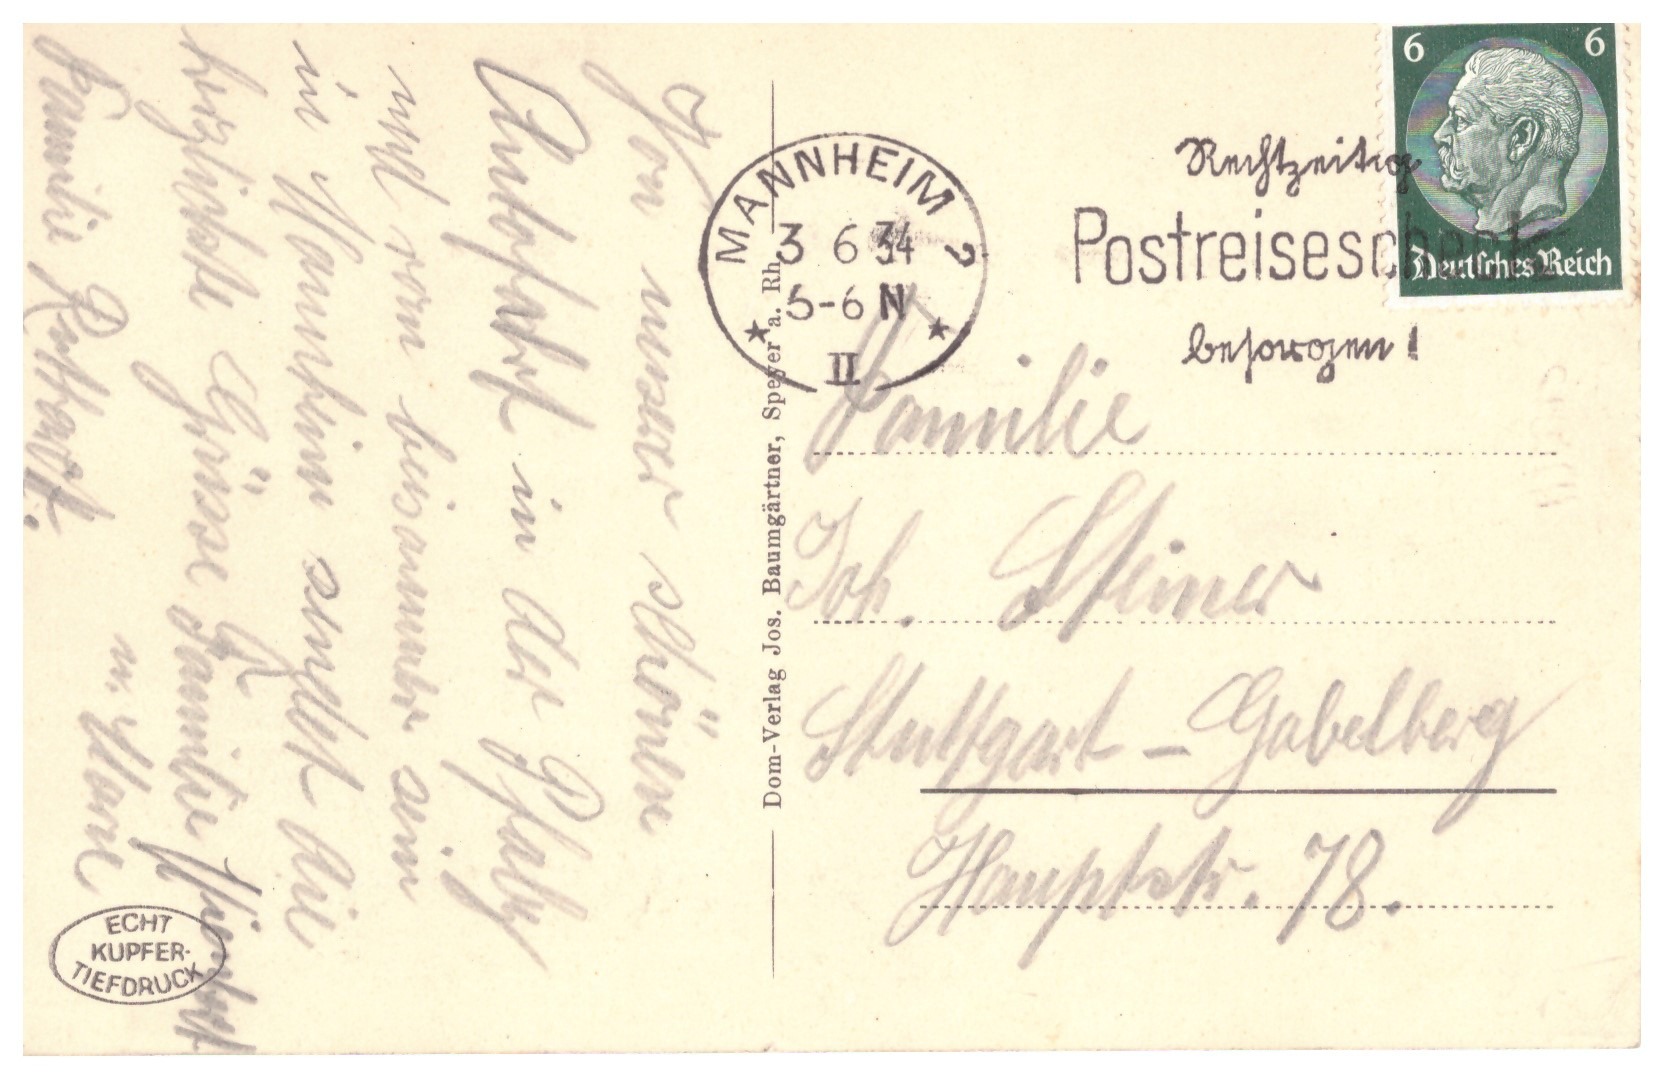 Von unserer schönen
Autofahrt in der Pfalz
und vom beisammen sein
in Mannheim sendet die
herzlichste Grüsse Familie
Familie
u.
MANNHEIM 2
3 6 34
5-6 N
II
Rechtzeitig
Postreiseschecks
besorgen!
6 6
Deutsches Reich
Dom-Verlag Jos. Baumgärtner, Speyer a. Rh.
Familie
Joh. Steiner
Stuttgart - Gabelberg
Hauptstr. 78.
ECHT
KUPFER-
TIEFDRUCK